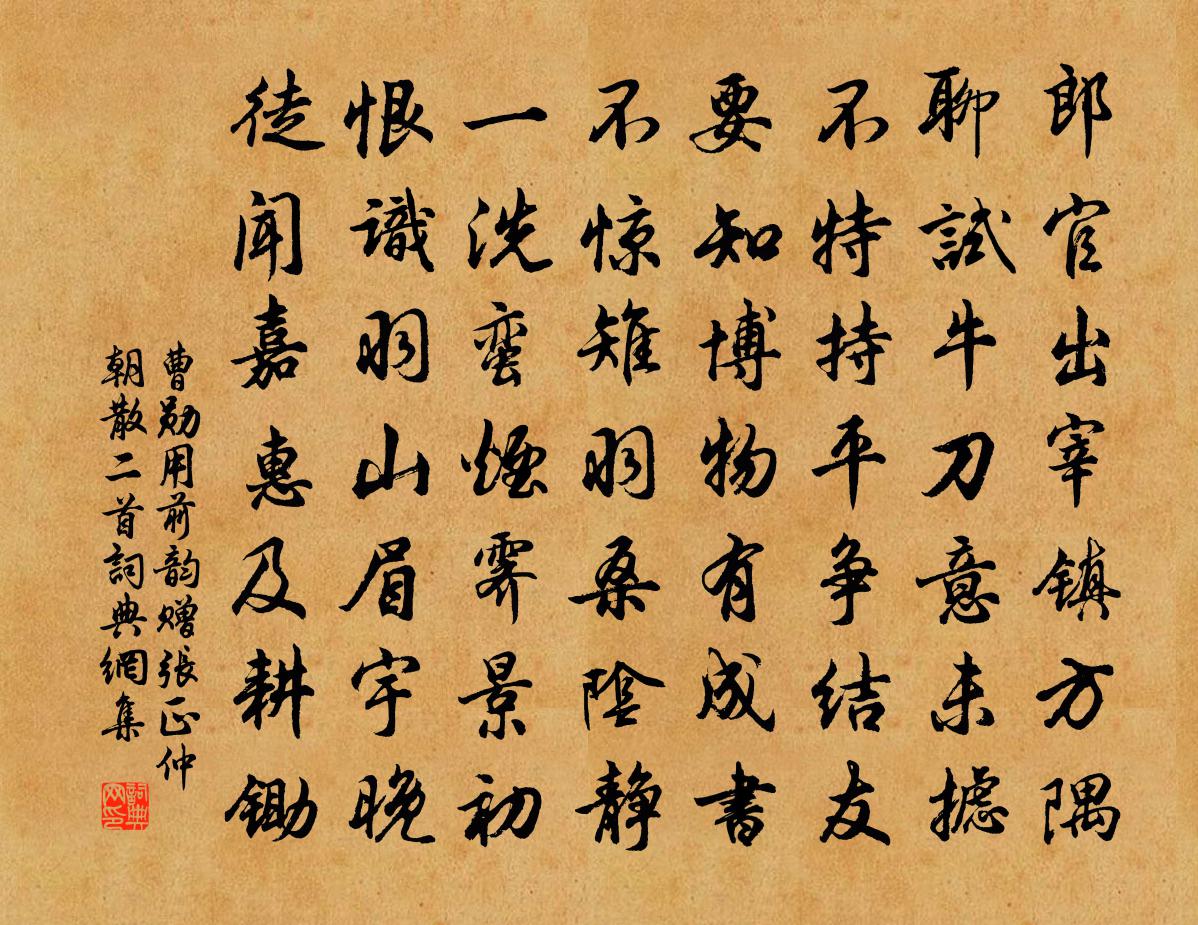 郎官出宰镇方隅
聊試牛刀意未攄
不特持平争结友
要知博物有成書
不惊雉羽桑陰静
一洗蛮煙霁景初
恨識羽山眉宇晚
徒闻嘉惠及耕锄
曹勋用前韵赠張正仲
朝散二首詞典網集
詞典网印